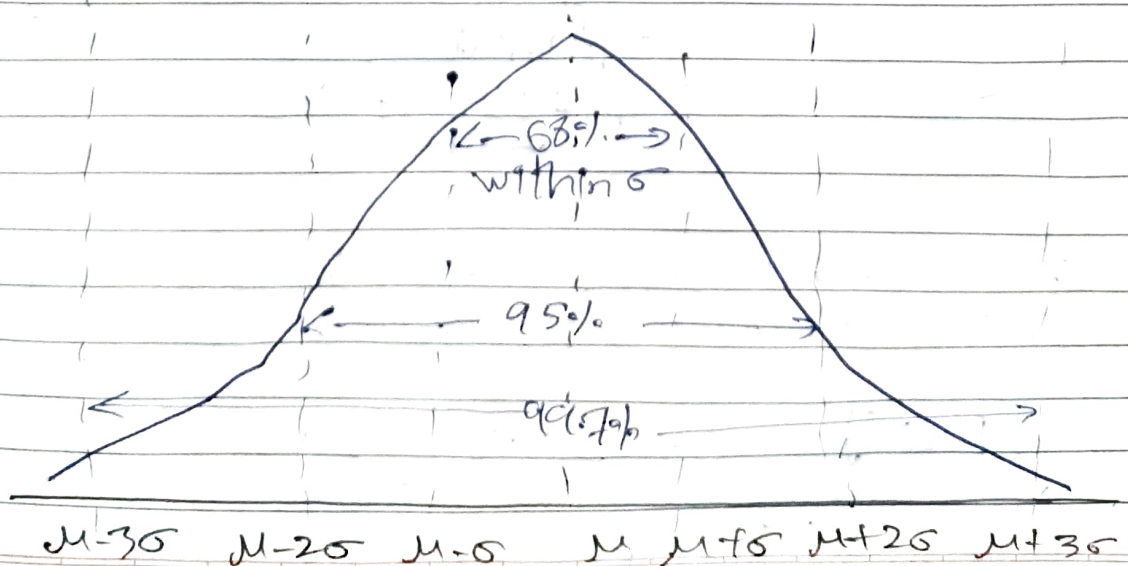 68%
within σ
95%
99.7%
μ-3σ μ-2σ μ-σ μ μ+σ μ+2σ μ+3σ